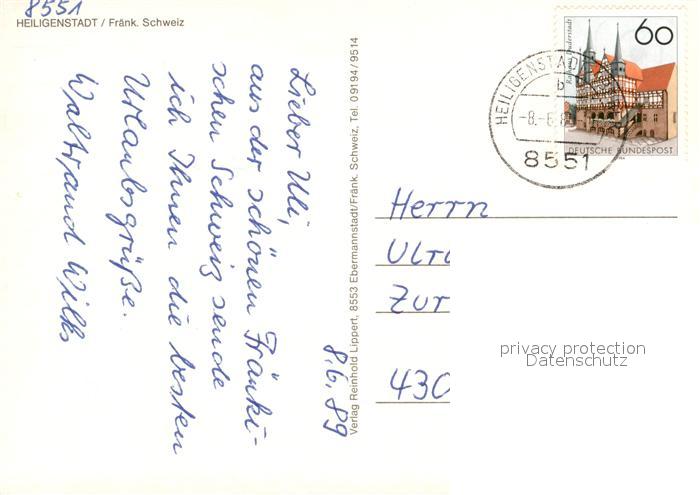 8551
HEILIGENSTADT / Fränk. Schweiz
8.6.89
Lieber Uli,
aus der schönen Fränki-
schen Schweiz sende
ich Ihnen die besten
Urlaubsgrüße.
Waltraud Wilks
Verlag Reinhold Lippert, 8553 Ebermannstadt/Fränk. Schweiz, Tel. 09194/9514
60
Rathaus Duderstadt
DEUTSCHE BUNDESPOST
HEILIGENSTADT
b
8551
Herrn
Ulri
Zur
430
privacy protection
Datenschutz